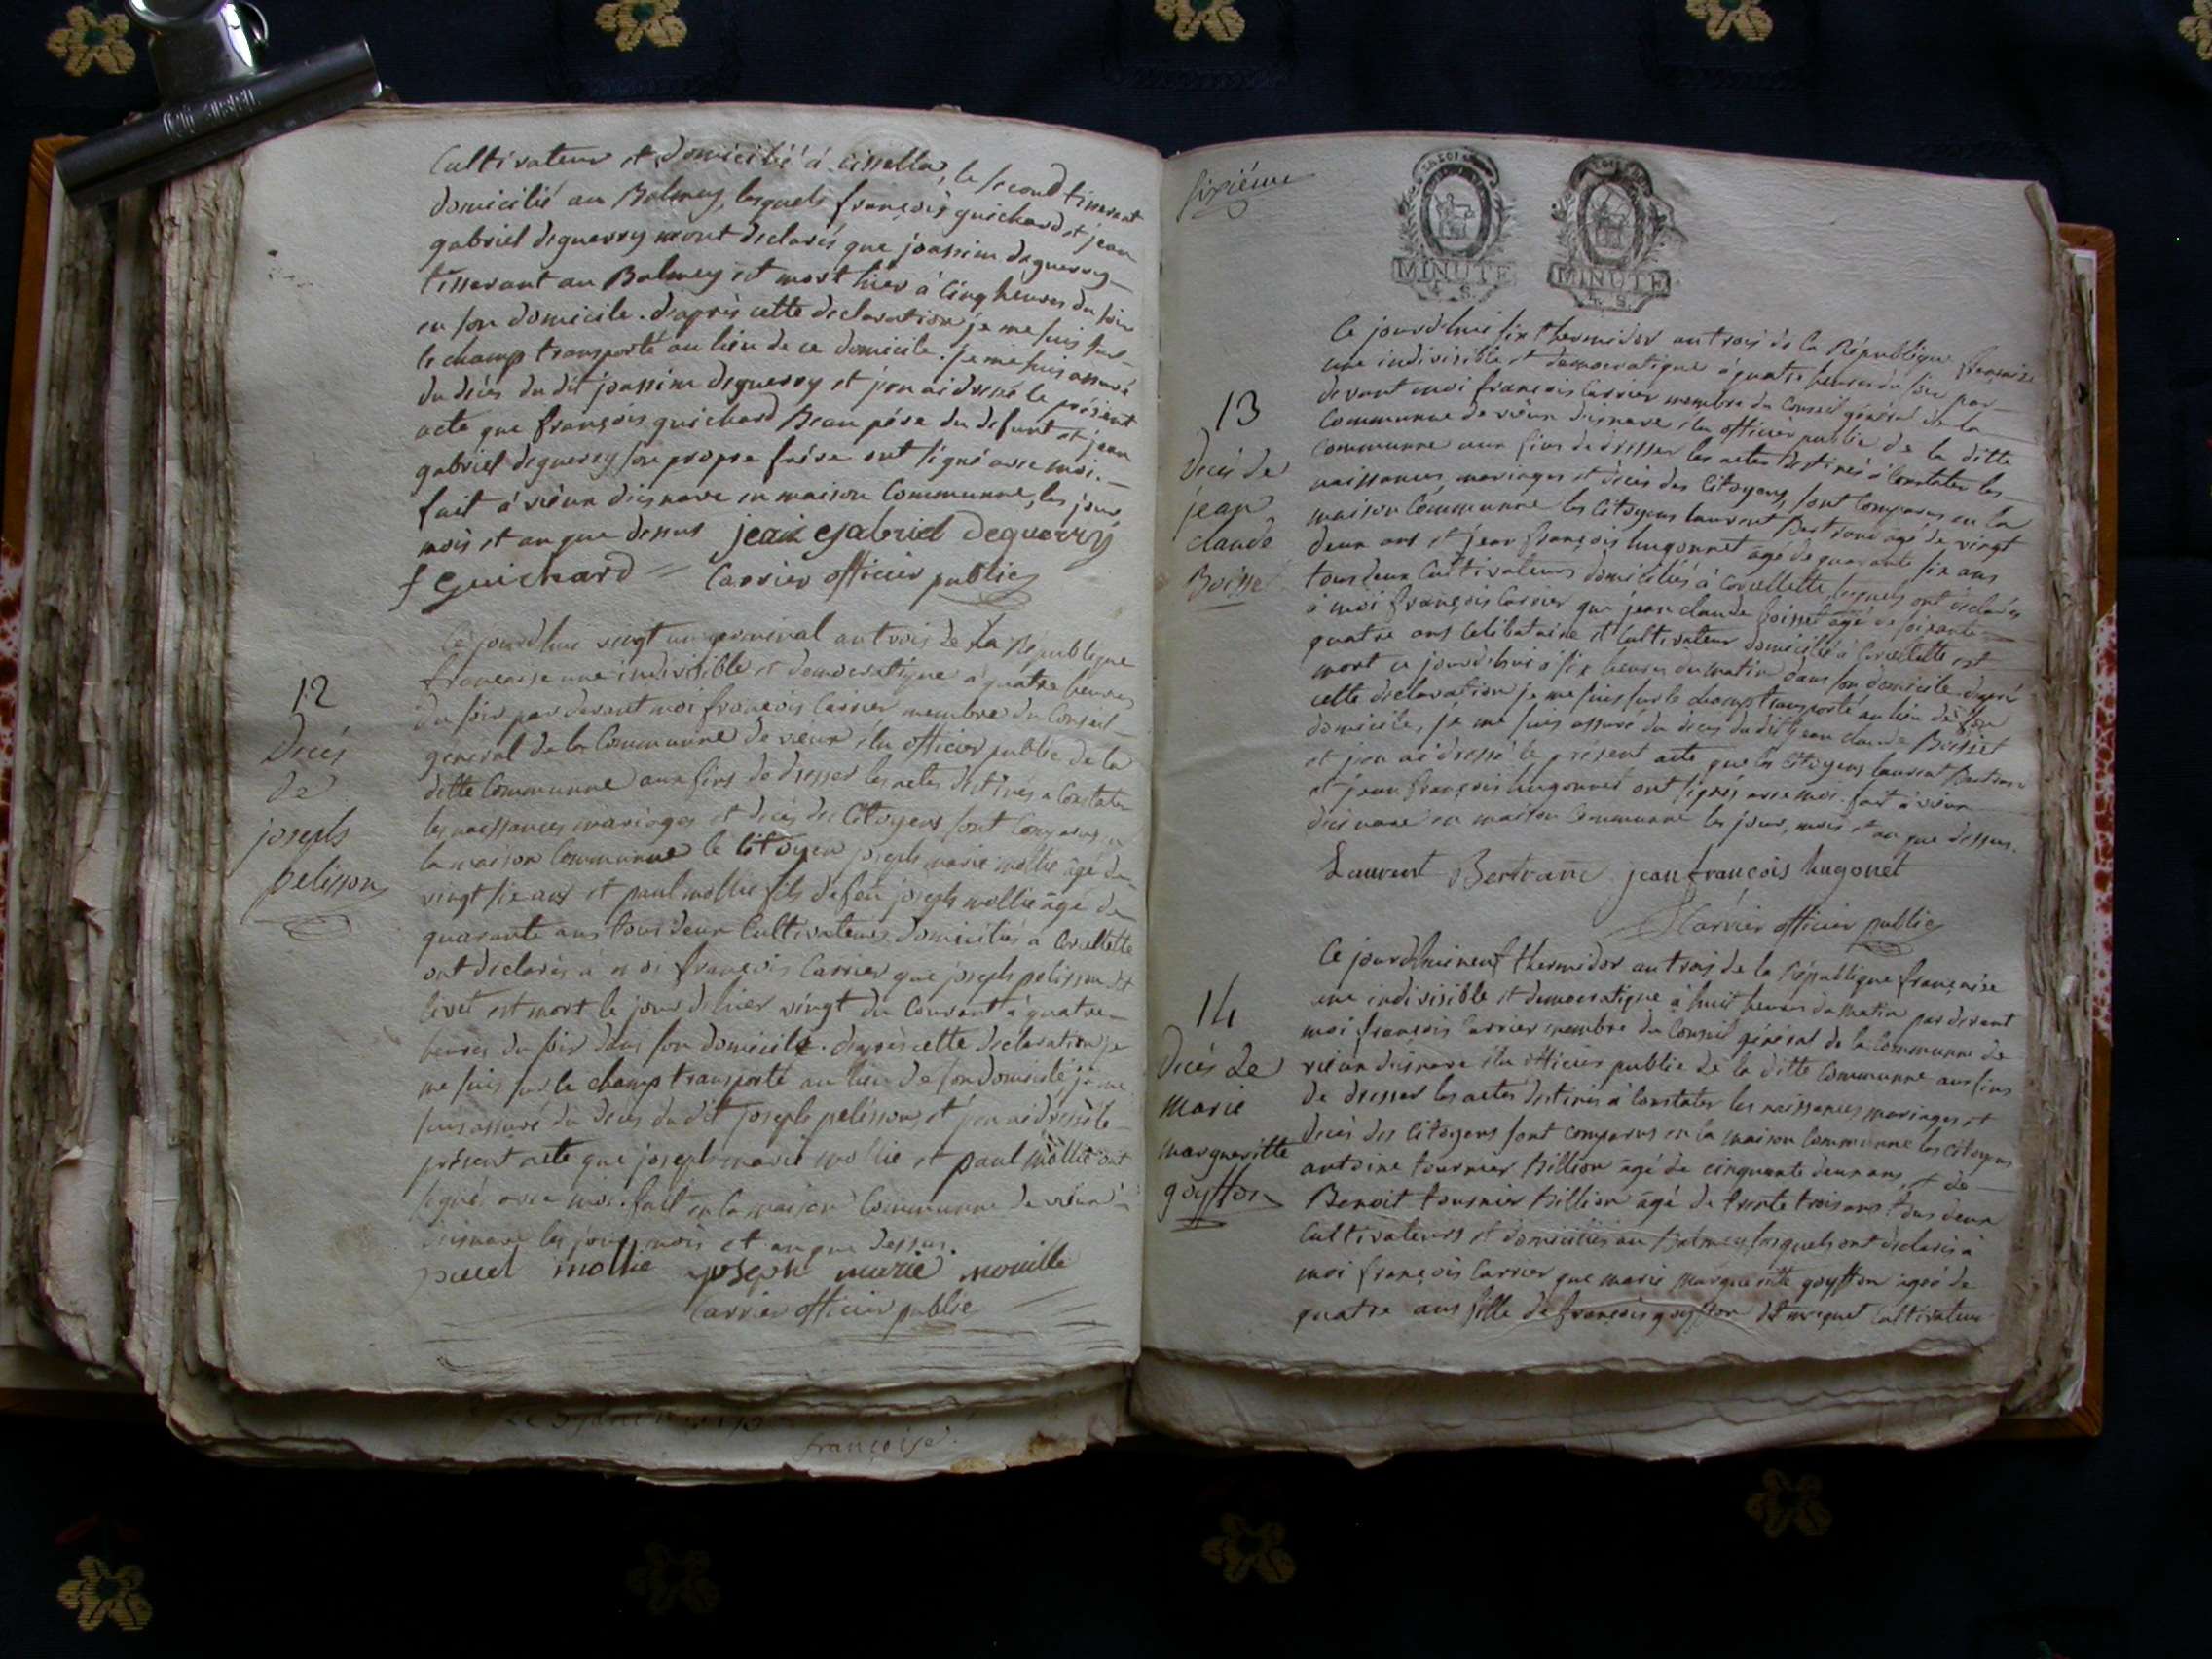 Cultivateur et domicilié à cissella, le second tisserant
domicilié au Balmey, lesquels françois guichard et jean
gabriel deguerry m'ont declarés que joassim deguerry
tisserant au Balmey est mort hier à cinq heures du soir
en son domicile. d'après cette declaration je me suis sur
le champ transporté au lieu de ce domicile. je me suis assuré
du décès du dit joassim deguerry et j'en ai dressé le présent
acte que françois guichard Beau père du defunt et jean
gabriel deguerry son propre frère ont signé avec moi.
fait à vieux disenave en maison Communne, les jour
mois et an que dessus jean gabriel deguerry
f guichard Carrier officier public
12
Decès
de
joseph
pelisson
Ce jourd'hui vingt un germinal an trois de la République
francaise une indivisible et democratique à quatre heures
du soir par devant moi françois Carrier membre du Conseil
general de la Communne de vieux élu officier public de la
ditte Communne aux fins de dresser les actes destinés a Constater
les naissances mariages et décès des Citoyens sont Comparus en
la maison Communne le Citoyen joseph marie mollie âgé de
vingt six ans et paul mollie fils de feu joseph mollie âgé de
quarante ans tous deux Cultivateurs domiciliés a Corcellette
ont declarés à moi françois Carrier que joseph pelisson dit
livet est mort le jour de hier vingt du Courant à quatre
heures du soir dans son domicile. d'après cette declaration je
me suis sur le champ transporté au lieu de son domicile je me
suis assuré du decès du dit joseph pelisson et j'en ai dressé le
présent acte que joseph marie mollie et paul mollie ont
signé avec moi. fait en la maison Communne de vieux
disenave les jour, mois et an que dessus.
paul mollie joseph marie mouille
Carrier officier public
sixiéme
MINUTE
4 S.
MINUTE
4 S.
13
Decès de
jean
claude
Boisset
Ce jourd'hui six thermidor an trois de la République française
une indivisible et democratique à quatre heures du soir par
devant moi françois Carrier membre du Conseil général de la
Communne de vieux disenave élu officier public de la ditte
Communne aux fins de dresser les actes destinés à Constater les
naissances, mariages et décès des Citoyens, sont Comparus en la
maison Communne les Citoyens laurent Bertrand âgé de vingt
deux ans et jean françois hugonnet âgé de quarante six ans
tous deux Cultivateurs domiciliés à Corcellette, lesquels ont déclarés
à moi françois Carrier que jean claude boisset âgé de soixante
quatre ans Celibataire et Cultivateur domicilié à Corcellette est
mort ce jourd'hui à six heures du matin dans son domicile. d'après
cette declaration je me suis sur le champ transporté au lieu de son
domicile, je me suis assuré du décès du dit jean claude Boisset
et j'en ai dressé le présent acte que les Citoyens laurent Bertrand
et jean françois hugonnet ont signés avec moi. fait à vieux
disenave en maison Communne les jour, mois et an que dessus.
Laurent Bertrand jean françois hugonet
Carrier officier public
14
Décès de
Marie
margueritte
goyffon
Ce jourd'hui neuf thermidor an trois de la République française
une indivisible et democratique à huit heures du matin par devant
moi françois Carrier membre du Conseil général de la Communne de
vieux disenave élu officier public de la ditte Communne aux fins
de dresser les actes destinés à Constater les naissances mariages et
décès des Citoyens sont comparus en la maison Communne les Citoyens
antoine tournier billion âgé de cinquante deux ans, et de
Benoit tournier billion âgé de trente trois ans tous deux
Cultivateurs et domiciliés au Balmey, lesquels ont declarés à
moi françois Carrier que marie margueritte goyffon âgée de
quatre ans fille de françois goyffon dit miquet Cultivateur
françoise